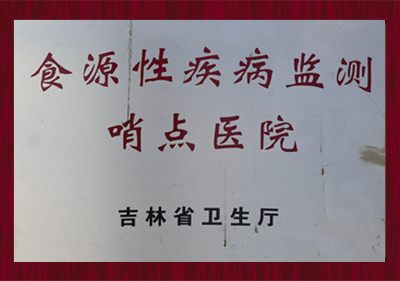 食源性疾病监测
哨点医院
吉林省卫生厅